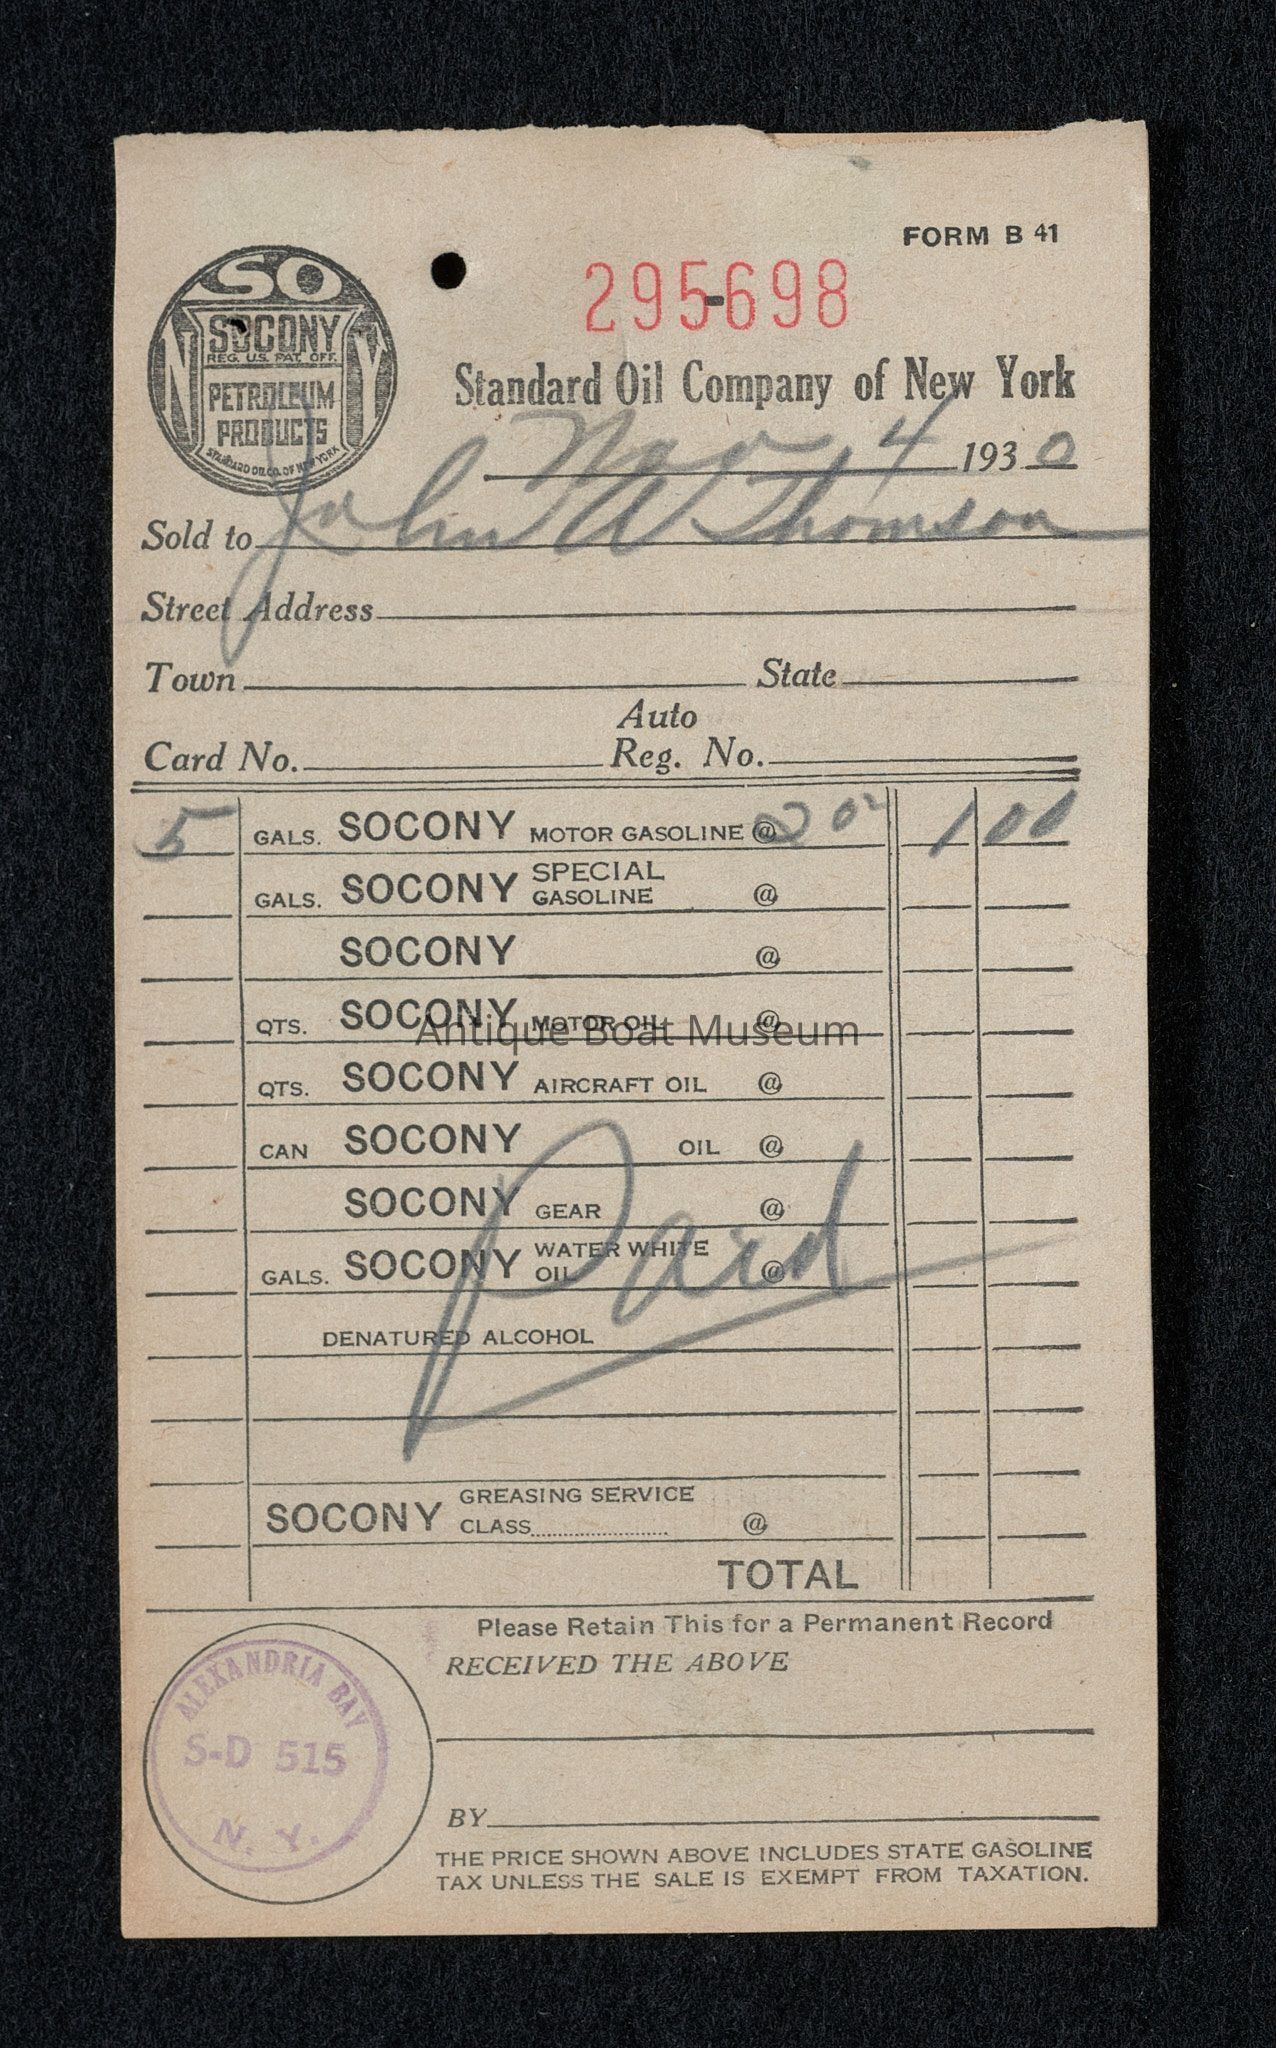 FORM B 41
295-698
SO
N Y
SOCONY
REG. U.S. PAT. OFF.
PETROLEUM
PRODUCTS
STANDARD OIL CO. OF NEW YORK
Standard Oil Company of New York
Nov 4 1930
Sold to John W Thomson
Street Address
Town State
Auto
Card No. Reg. No.
5 GALS. SOCONY MOTOR GASOLINE @ 20 1 00
GALS. SOCONY SPECIAL GASOLINE @
SOCONY @
QTS. SOCONY MOTOR OIL @
Antique Boat Museum
QTS. SOCONY AIRCRAFT OIL @
CAN SOCONY OIL @
SOCONY GEAR @
GALS. SOCONY WATER WHITE OIL @
Paid
DENATURED ALCOHOL
SOCONY GREASING SERVICE CLASS @
TOTAL
Please Retain This for a Permanent Record
RECEIVED THE ABOVE
ALEXANDRIA BAY
S-D 515
N. Y.
BY
THE PRICE SHOWN ABOVE INCLUDES STATE GASOLINE
TAX UNLESS THE SALE IS EXEMPT FROM TAXATION.